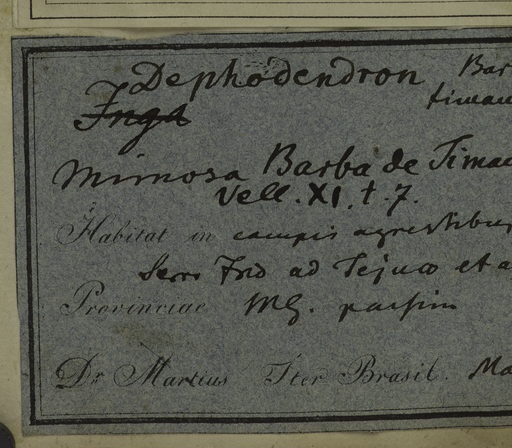 Dephodendron Bar
Inga timan
Mimosa Barba de Timan
Vell. XI. t. 7.
Habitat in campis agrestibus
Serro Frio ad Tejuco et a
Provinciae MG. passim
Dr. Martius Iter Brasil. Ma